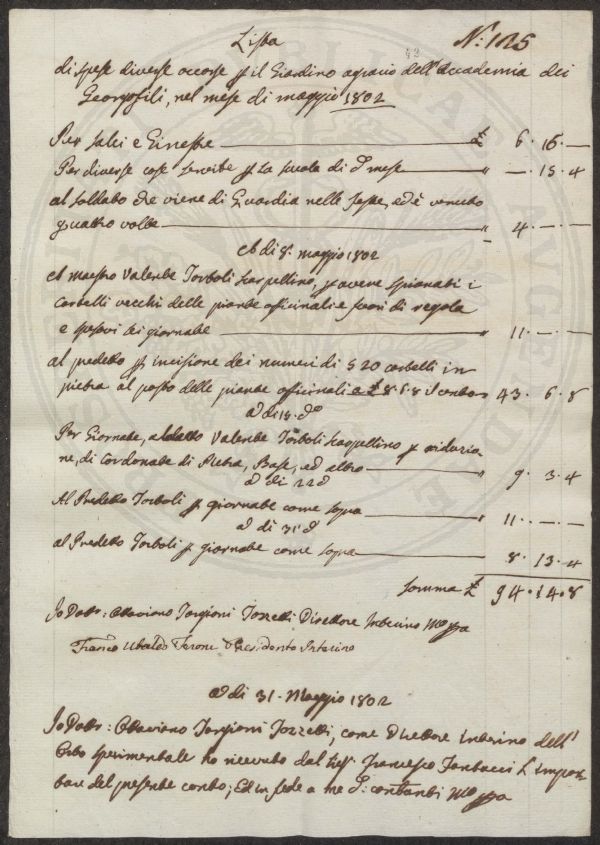 Lista N.° 125
di spese diverse occorse p il Giardino agrario dell'Accademia dei
Georgofili, nel mese di maggio 1802
Per salci e Ginestre £ 6 . 16 . —
Per diverse cose servite p La scuola di d.° mese " — . 15 . 4
al soldato che viene di Guardia nelle feste, ed è venuto
quattro volte " 4 . — . —
A di 8. maggio 1802
A maestro Valente Torboli scarpellino, p avere spianati i
cartelli vecchi delle piante officinali e fuori di regola
e spesovi sei giornate " 11 . — . —
al predetto p incisione dei numeri di 520 cartelli in
pietra al posto delle piante officinali a £ 8.6.8 il cento 43 . 6 . 8
A di 15. d.°
Per Giornate, al detto Valente Torboli Scarpellino p riduzio-
ne, di Cordonate di Pietra, Base, ed altro " 9 . 3 . 4
A di 22 d.
Al Predetto Torboli p giornate come sopra " 11 . — . —
A di 31 d.
al Predetto Torboli p giornate come sopra 8 . 13 . 4
Somma £ 94 . 14 . 8
Io Dott: Ottaviano Targioni Tozzetti Direttore Interino
Franc.° Ubaldo Presidente Interino
A di 31. Maggio 1802
Io Dott: Ottaviano Targioni Tozzetti, come Direttore Interino dell'
Orto sperimentale ho ricevuto dal Francesco Fantacci L'impor-
tare del presente conto; Ed in fede a me d: contanti